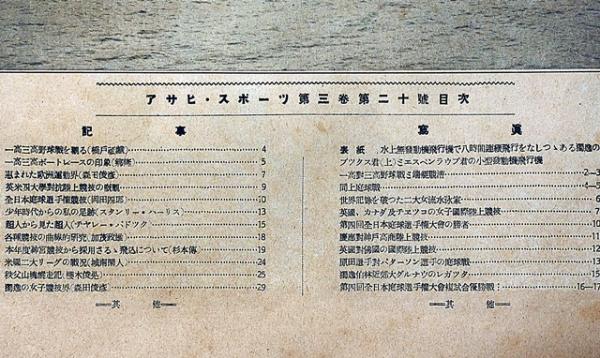 アサヒ・スポーツ第三卷第二十號目次
記事
一高三高野球戰を觀る(橋戸頑鐵) 4
一高三高ボートレースの印象 5
惠まれた歐洲運動界(森田俊彦) 7
英米四大學對抗陸上競技の壯觀 9
全日本庭球選手權競技(岡田四郎) 10
少年時代からの私の足跡(スタンリー・ハーリス) 13
超人から見た超人(チヤレー・パドツク) 15
各種競技の曲線的研究(加茂政雄) 18
本年度神宮競技から採用さるゝ飛込について(杉本傳) 19
米國二大リーグの戰況(城南閑人) 24
秩父山塊縱走記 25
獨逸の女子競技界(森田俊彦) 29
其他
寫眞
表紙 水上無發動機飛行機で八時間連續飛行をなしつゝある獨逸の
プツタス君(上)ミエスペンラウブ君の小型發動機飛行機
一高對三高野球戰ミ應援戰 2—3
同上庭球戰 4—5
世界記錄を破つた二大女流水泳家 6
英國、カナダ及チエツコの女子國際陸上競技 7
第四回全日本庭球選手權大會の勝者 10
慶應對神戸高商陸上競技 11
英國對佛國の國際陸上競技 12
原田選手對パターソン選手の庭球戰 13
獨逸伯林近郊大グルナウのレガツタ 15
第四回全日本庭球選手權大會複試合優勝戰 16—17
其他